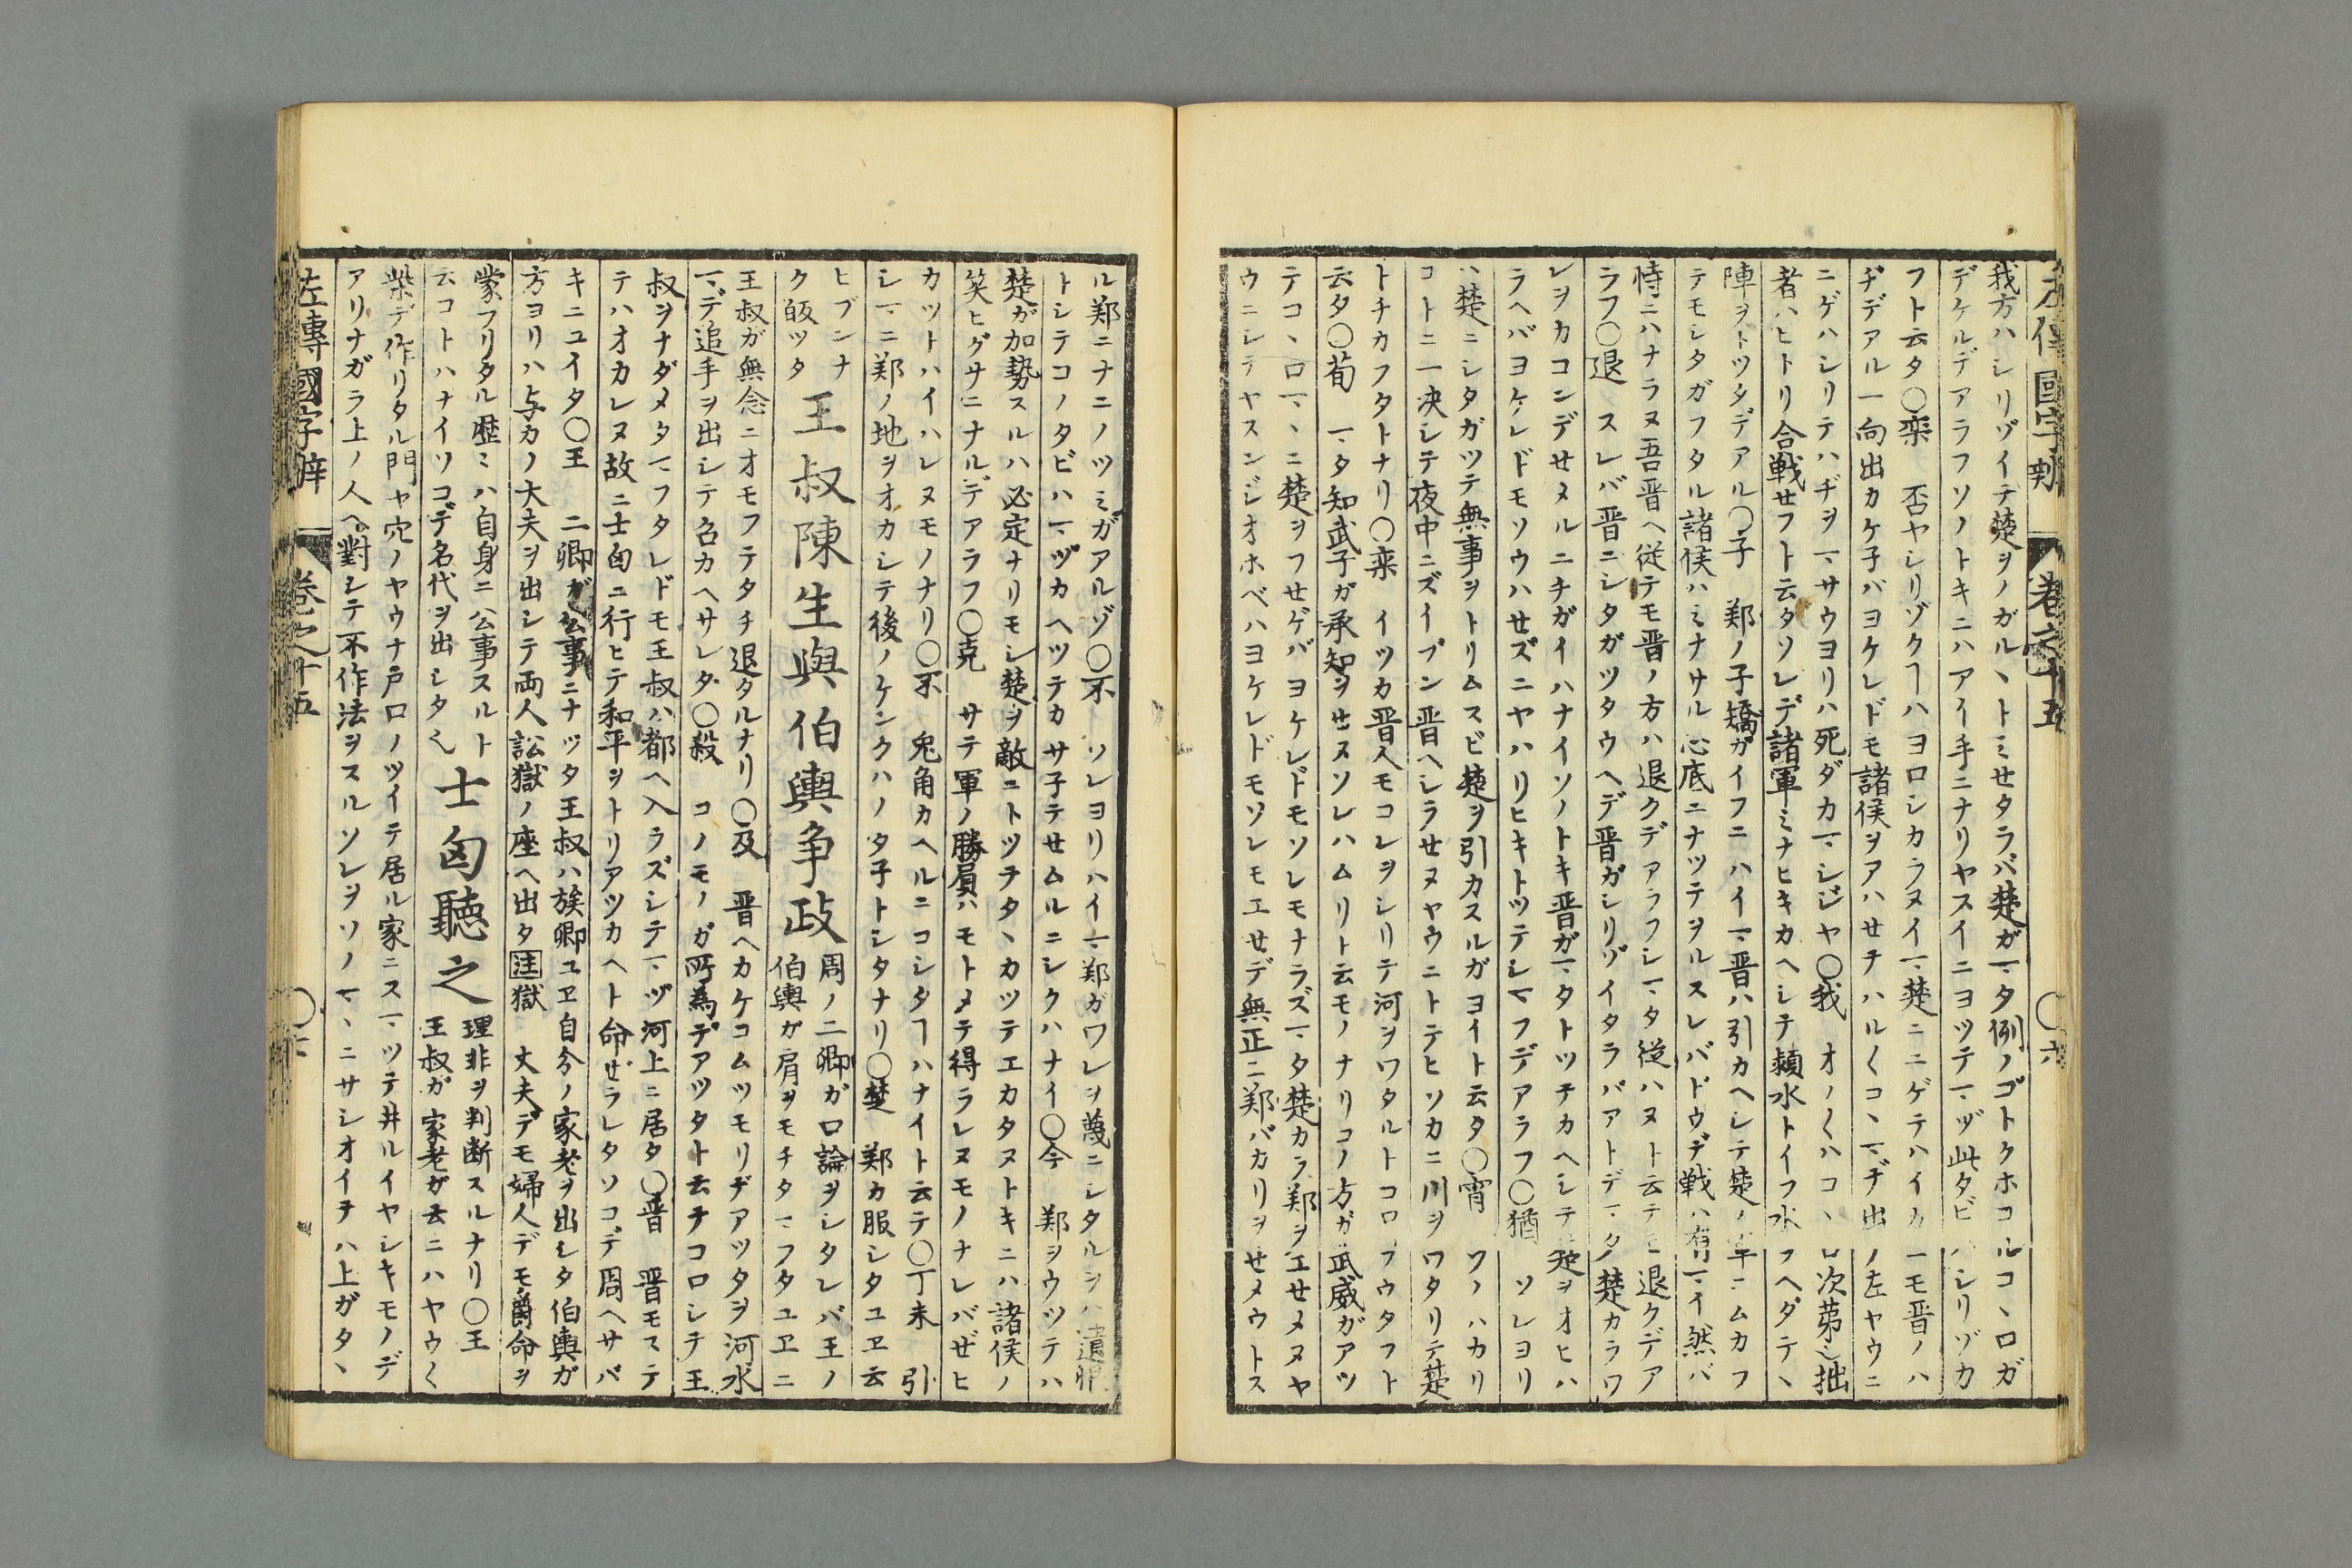 左傳國字辯 卷之十五 〇六
我方ハシリゾイテ楚ヲノガルヽトミセタラバ楚ガ一タ例ノゴトクホコルコヽロガ
デケルデアラフソノトキニハアイ手ニナリヤスイニヨツテ一ヅ此タビハシリゾカ
フト云タ〇栾 否ヤシリゾクヿハヨロシカラヌイ一楚ニニゲテハイカ一モ晋ノハ
ヂデアル一向出カケ子バヨケレドモ諸侯ヲアハセテハル〱コヽ一デ出ノ左ヤウニ
ニゲハシリテハヂヲ一サウヨリハ死ダカ一シジヤ〇我 オノ〱ハコヽロ次第ニ拙
者ハヒトリ合戦せフト云タソレデ諸軍ミナヒキカヘシテ頴水トイフ水ヲヘダテヽ
陣ヲトツタデアル〇子 郑ノ子矯ガイフニハイ一晋ハ引カヘシテ楚ノ軍ニムカフ
テモシタガフタル諸侯ハミナサル心底ニナツテヲルスレバドウデ戦ハ有一イ然バ
恃ニハナラヌ吾晋ヘ従テモ晋ノ方ハ退クデアラフシ一タ従ハヌト云テモ退クデア
ラフ〇退 スレバ晋ニシタガツタウヘデ晋ガシリゾイタラバアトデ一タ楚カラワ
レヲカコンデせメルニチガイハナイソノトキ晋ガ一タトツテカヘシテ楚ヲオヒハ
ラヘバヨケレドモソウハせズニヤハリヒキトツテシ一フデアラフ〇猶 ソレヨリ
ハ楚ニシタガツテ無事ヲトリムスビ楚ヲ引カスルガヨイト云タ〇宵 ソノハカリ
コトニ一决シテ夜中ニズイブン晋ヘシラせヌヤウニトテヒソカニ川ヲワタリテ楚
トチカフタトナリ〇栾 イツカ晋人モコレヲシリテ河ヲワタルトコロヲウタフト
云タ〇荀 一タ知武子ガ承知ヲせヌソレハムリト云モノナリコノ方ガ武威ガアツ
テコヽロ一ヽニ楚ヲフせゲバヨケレドモソレモナラズ一タ楚カラ郑ヲエせメヌヤ
ウニシテヤスンジオホベハヨケレドモソレモエせデ無正ニ郑バカリヲせメウトス
ル郑ニナニノツミガアルゾ〇不 ソレヨリハイ一郑ガワレヲ蔑ニシタルヲハ遺恨
トシテコノタビハ一ヅカヘツテカサ子テせムルニシクハナイ〇今 郑ヲウツテハ
楚ガ加勢スルハ必定ナリモシ楚ヲ敵ニトツテタヽカツテエカタヌトキニハ諸侯ノ
笑ヒグサニナルデアラフ〇克 サテ軍ノ勝負ハモトメテ得ラレヌモノナレバぜヒ
カツトハイハレヌモノナリ〇不 兎角カヘルニコシタヿハナイト云テ〇丁未 引
シ一ニ郑ノ地ヲオカシテ後ノケンクハノタ子トシタナリ〇楚 郑カ服シタユヱ云
ヒブンナ
ク皈ツタ
王叔陳生與伯輿争政
周ノ二卿ガ口論ヲシタレバ王ノ
伯輿ガ肩ヲモチタ一フタユヱニ
王叔ガ無念ニオモフテタチ退タルナリ〇及 晋ヘカケコムツモリデアツタヲ河水
一デ追手ヲ出シテ召カヘサレタ〇殺 コノモノガ所為デアツタト云テコロシテ王
叔ヲナダメタ一フタレドモ王叔ハ都ヘ入ラズシテ一ヅ河上ニ居タ〇晋 晋モステ
テハオカレヌ故ニ士匃ニ行ヒテ和平ヲトリアツカヘト命ぜラレタソコデ周ヘサバ
キニユイタ〇王 二卿ガ公事ニナツタ王叔ハ族卿ユヱ自分ノ家老ヲ出シタ伯輿ガ
方ヨリハ与カノ大夫ヲ出シテ両人訟獄ノ座ヘ出タ注獄 丈夫デモ婦人デモ爵命ヲ
蒙フリタル歴ミハ自身ニ公事スルト
云コトハナイソコデ名代ヲ出シタ也
士匃聽之
理非ヲ判断スルナリ〇王
王叔ガ家老ガ云ニハヤウ〱
柴デ作リタル門ヤ穴ノヤウナ戸口ノツイテ居ル家ニス一ツテ井ルイヤシキモノデ
アリナガラ上ノ人ヘ對シテ不作法ヲスルソレヲソノ一ヽニサシオイテハ上ガタヽ
左傳國字辯 卷之十五 〇六